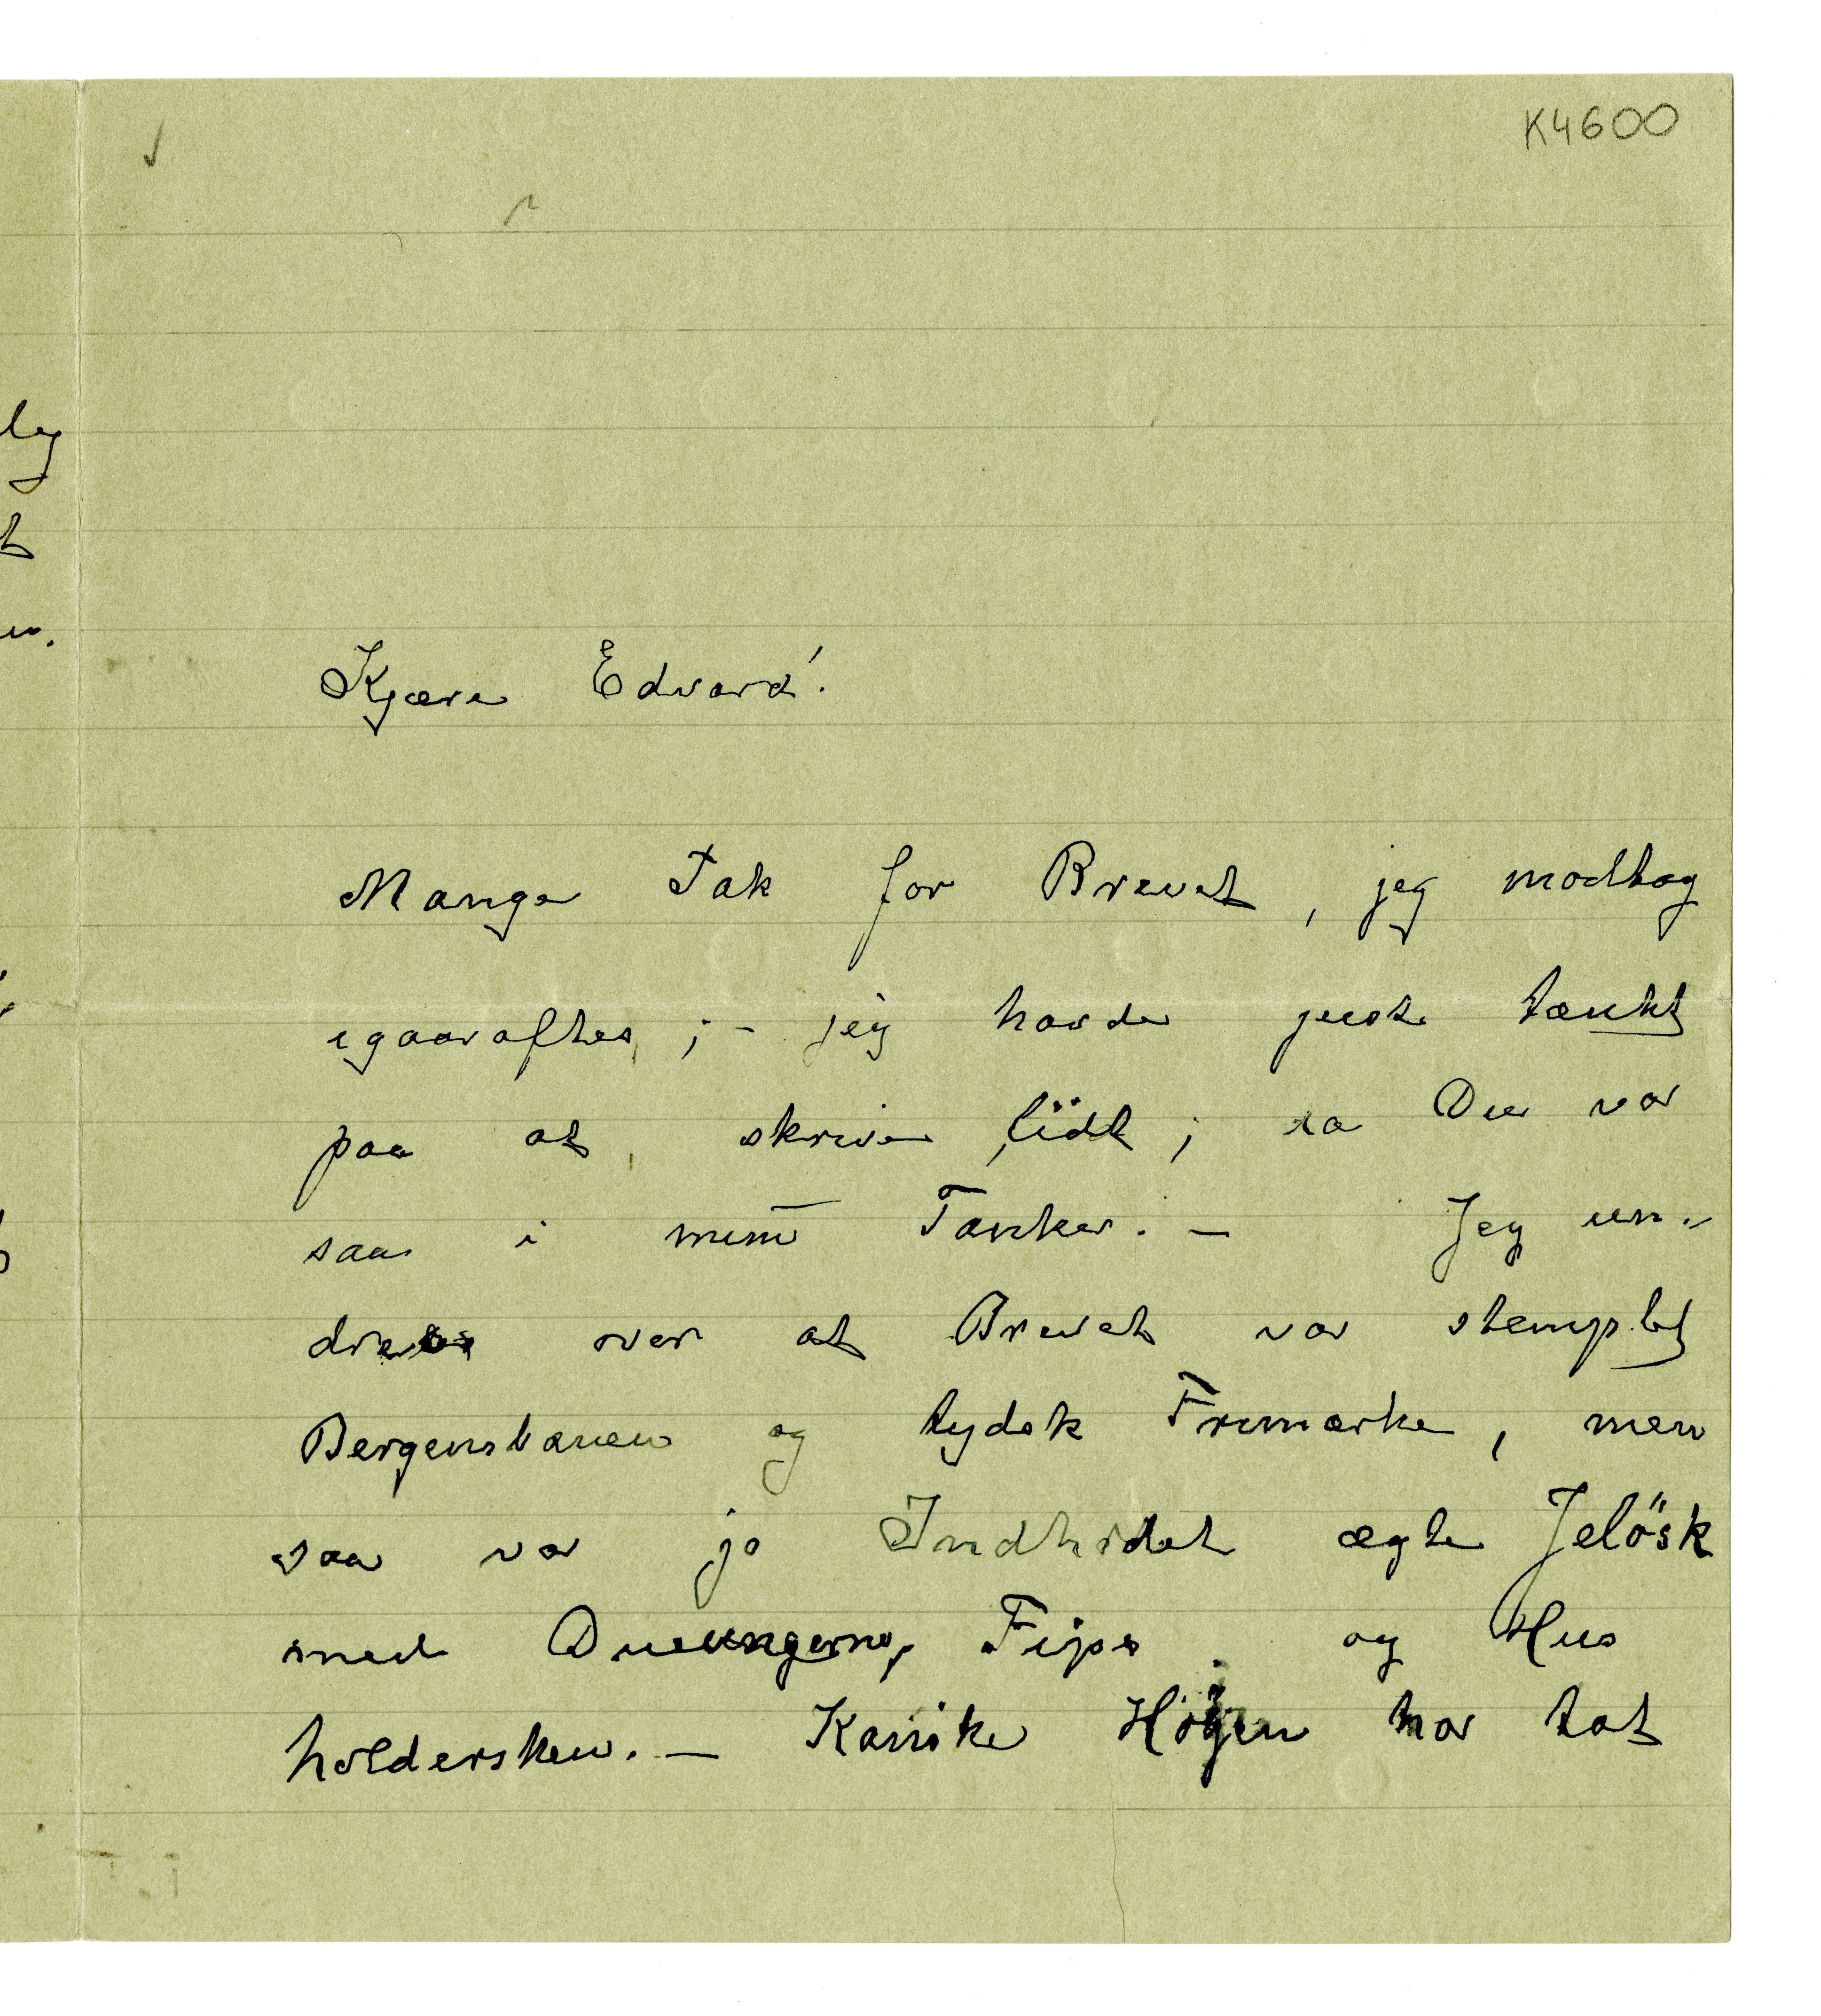 K4600
Kjære Edvard!
Mange Tak for Brevet, jeg modtog
igaaraftes, ;– jeg havde juste tænkt
paa at skrive lidt; da Du var
saa i mine Tanker. – Jeg un-
dres over at Brevet var stemplet
Bergensbanen og tydsk Frimærke, men
saa var jo Indholdet ægte Jelösk
med Dueungerne, Fips og Hus
holdersken. – Kanike Höyen har tat